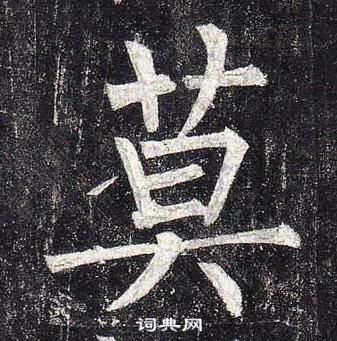 莫
词典网